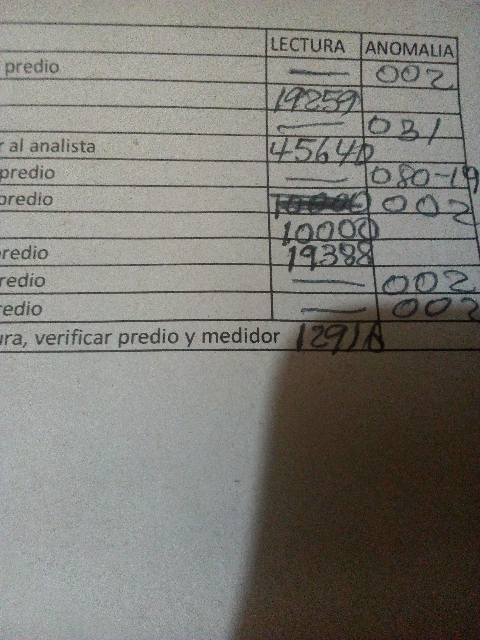 LECTURA ANOMALIA
predio — 002
19259
— 031
r al analista 45640
predio — 080-19
predio 002
10000
redio 19388
redio — 002
redio — 002
ura, verificar predio y medidor